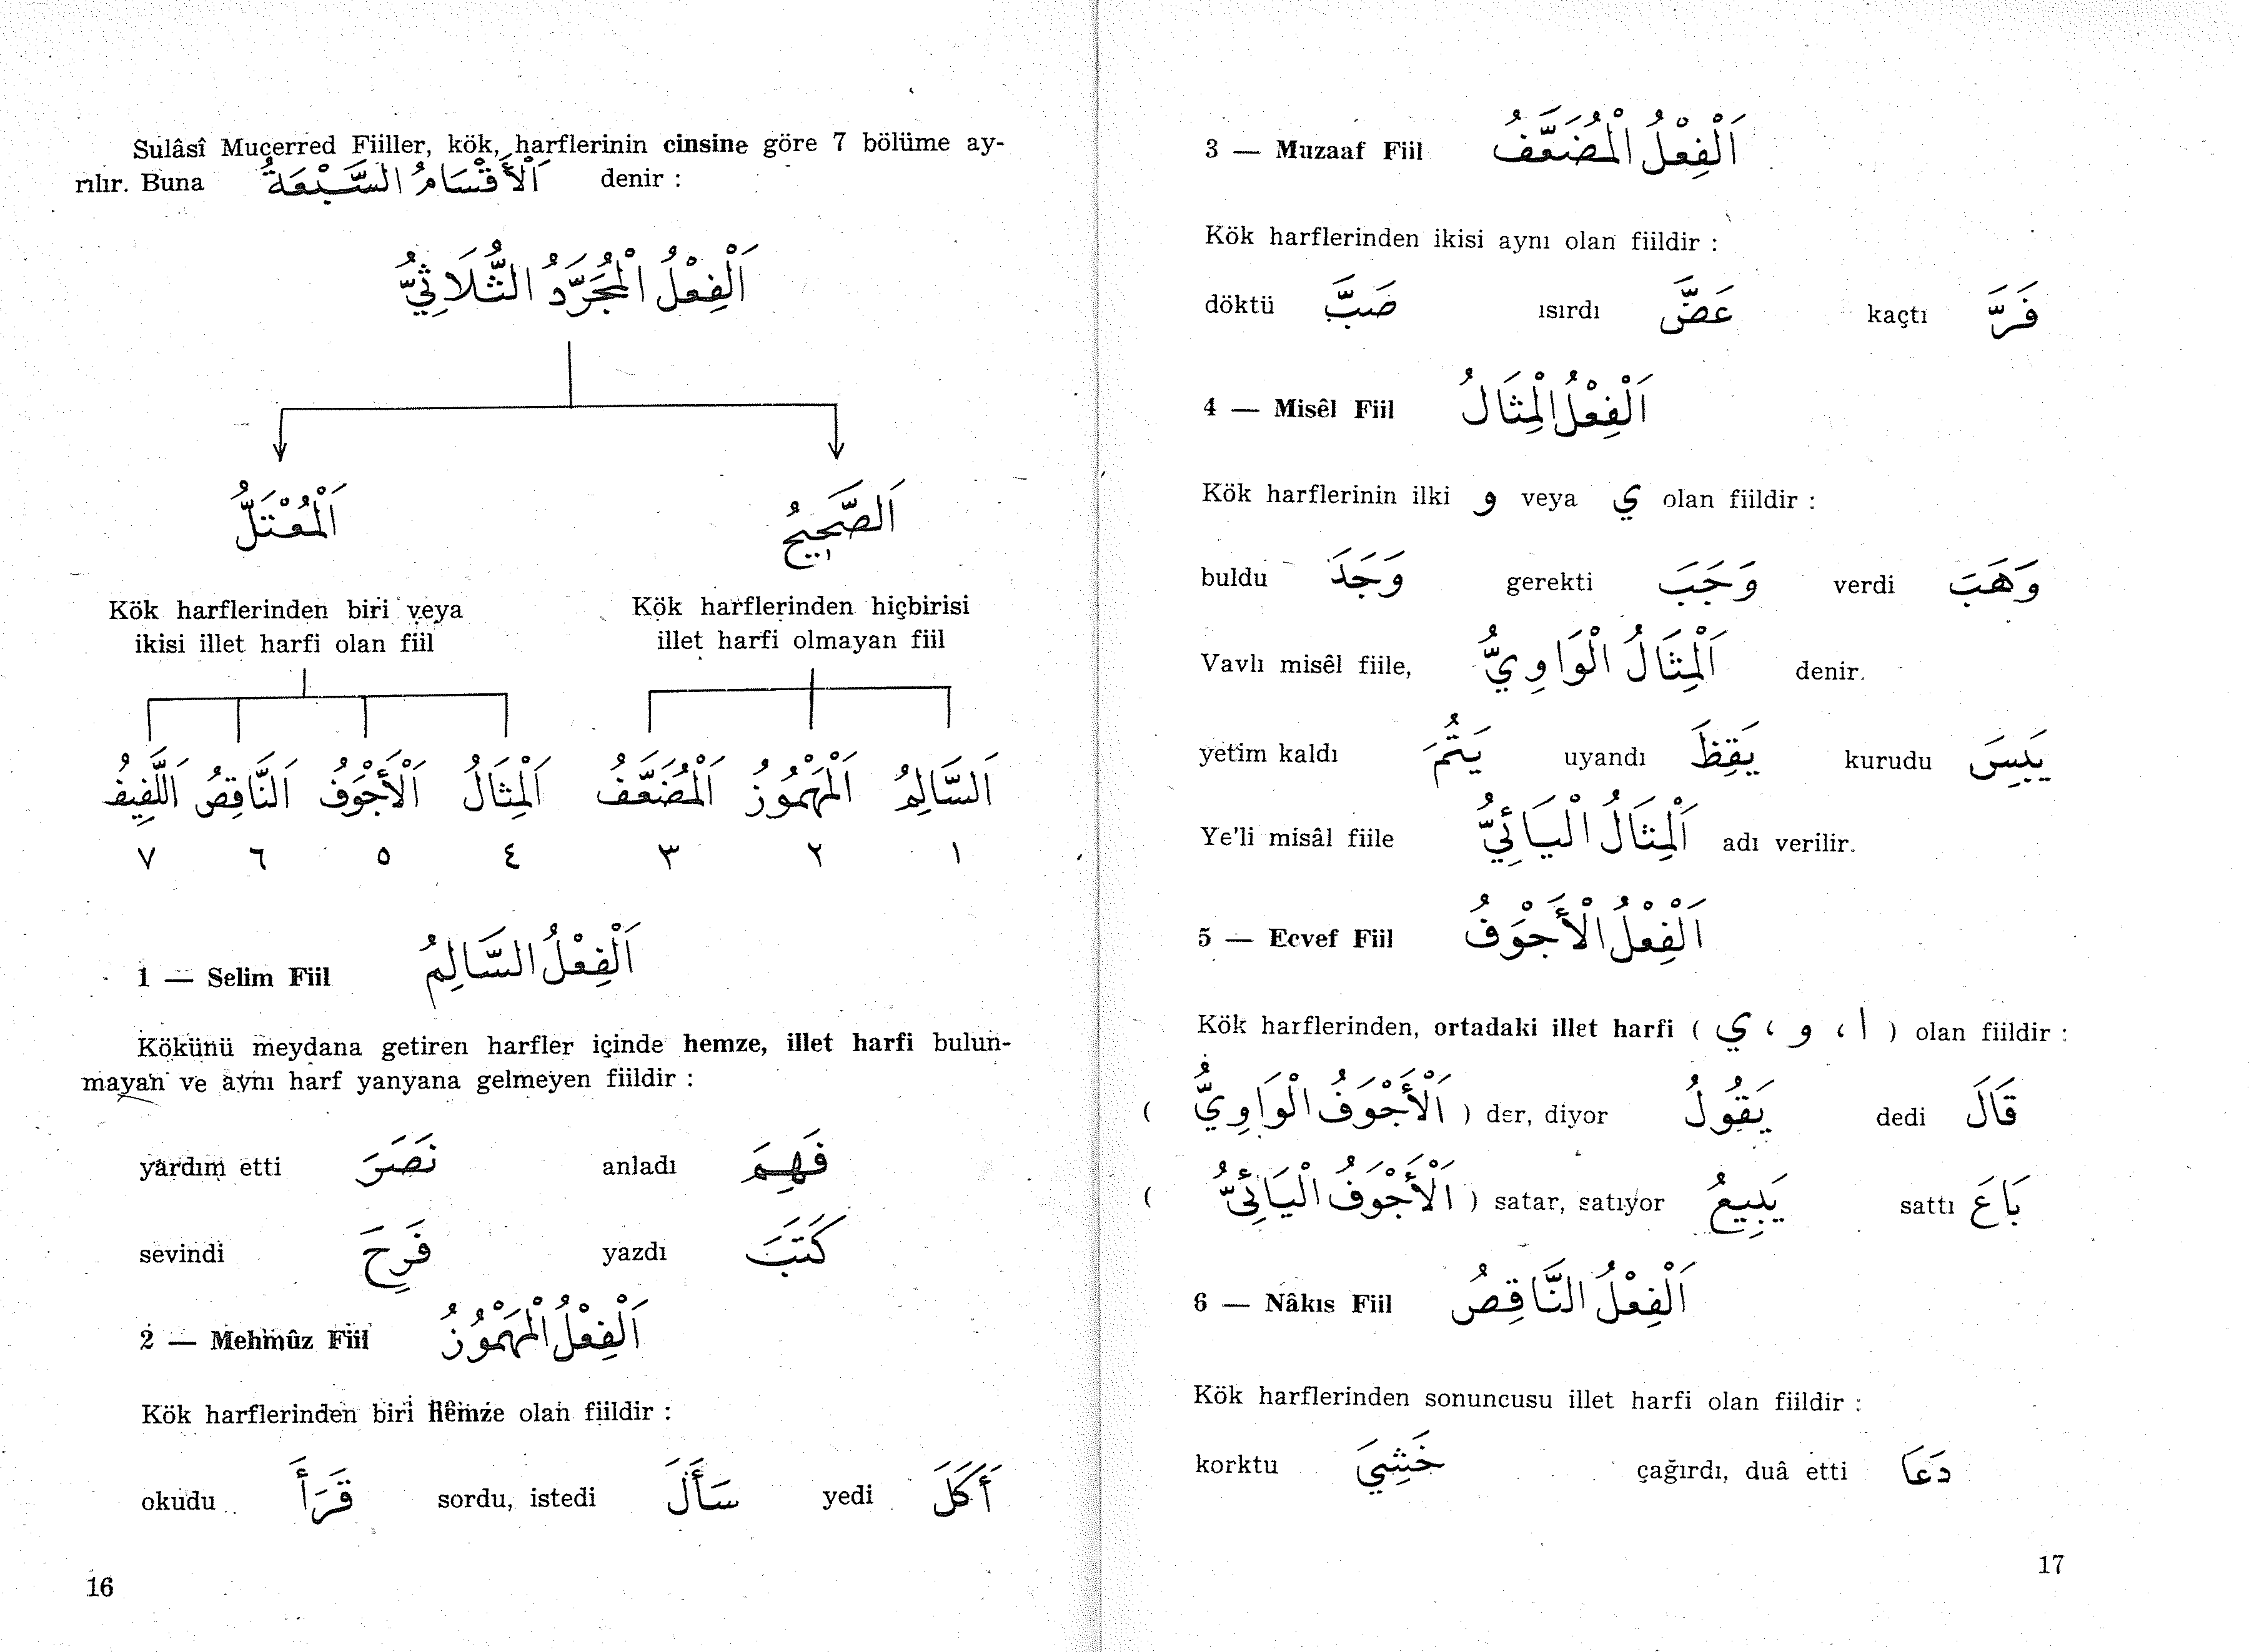 Sulâsî Mucerred Fiiller, kök, harflerinin cinsine göre 7 bölüme ay-
rılır. Buna اَلْأَقْسَامُ السَّبْعَةُ denir :
اَلْفِعْلُ الْمُجَرَّدُ الثُّلَاثِيُّ
اَلْمُعْتَلُّ اَلصَّحِيحُ
Kök harflerinden biri veya
ikisi illet harfi olan fiil
Kök harflerinden hiçbirisi
illet harfi olmayan fiil
اَلسَّالِمُ اَلْمَهْمُوزُ اَلْمُضَعَّفُ اَلْمِثَالُ اَلْأَجْوَفُ اَلنَّاقِصُ اَللَّفِيفُ
١ ٢ ٣ ٤ ٥ ٦ ٧
1 — Selim Fiil اَلْفِعْلُ السَّالِمُ
Kökünü meydana getiren harfler içinde hemze, illet harfi bulun-
mayan ve aynı harf yanyana gelmeyen fiildir :
yardım etti نَصَرَ anladı فَهِمَ
sevindi فَرِحَ yazdı كَتَبَ
2 — Mehmûz Fiil اَلْفِعْلُ الْمَهْمُوزُ
Kök harflerinden biri hemze olan fiildir :
okudu قَرَأَ sordu, istedi سَأَلَ yedi أَكَلَ
16
3 — Muzaaf Fiil اَلْفِعْلُ الْمُضَعَّفُ
Kök harflerinden ikisi aynı olan fiildir :
döktü صَبَّ ısırdı عَضَّ kaçtı فَرَّ
4 — Misêl Fiil اَلْفِعْلُ الْمِثَالُ
Kök harflerinin ilki و veya ي olan fiildir :
buldu وَجَدَ gerekti وَجَبَ verdi وَهَبَ
Vavlı misêl fiile, اَلْمِثَالُ الْوَاوِيُّ denir.
yetim kaldı يَتُمَ uyandı يَقِظَ kurudu يَبِسَ
Ye'li misâl fiile اَلْمِثَالُ الْيَائِيُّ adı verilir.
5 — Ecvef Fiil اَلْفِعْلُ الْأَجْوَفُ
Kök harflerinden, ortadaki illet harfi ( ا ، و ، ي ) olan fiildir :
( اَلْأَجْوَفُ الْوَاوِيُّ ) der, diyor يَقُولُ dedi قَالَ
( اَلْأَجْوَفُ الْيَائِيُّ ) satar, satıyor يَبِيعُ sattı بَاعَ
6 — Nâkıs Fiil اَلْفِعْلُ النَّاقِصُ
Kök harflerinden sonuncusu illet harfi olan fiildir :
korktu خَشِيَ çağırdı, duâ etti دَعَا
17